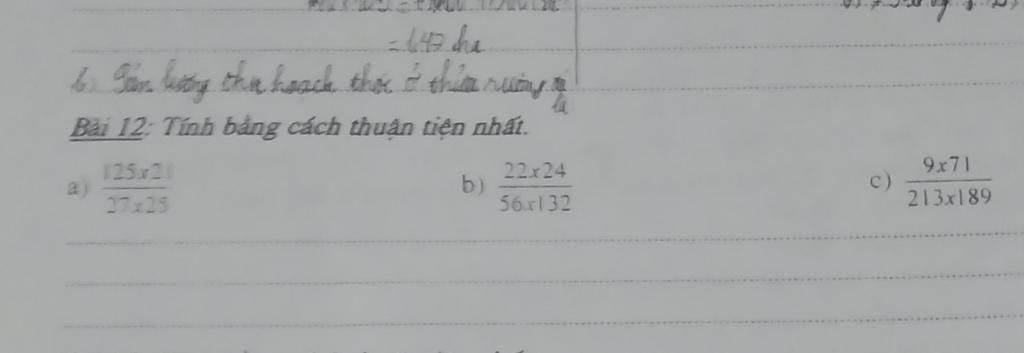 = 1,47 ha
b) Sản lượng thu hoạch thóc ở thửa ruộng
là
Bài 12: Tính bằng cách thuận tiện nhất.
a) 125x21 / 27x25 b) 22x24 / 56x132 c) 9x71 / 213x189